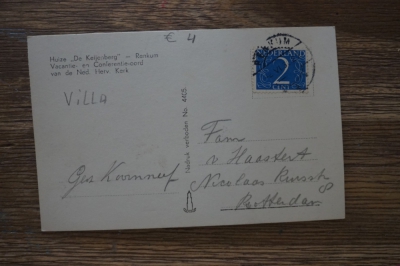 € 4
Huize „De Keijenberg" — Renkum
Vacantie- en Conferentieoord
van de Ned. Herv. Kerk
Villa
Nadruk verboden No. 4405
NEDERLAND
2
CENT
Fam
v Haastert
Nicolaas
8
Rotterdam